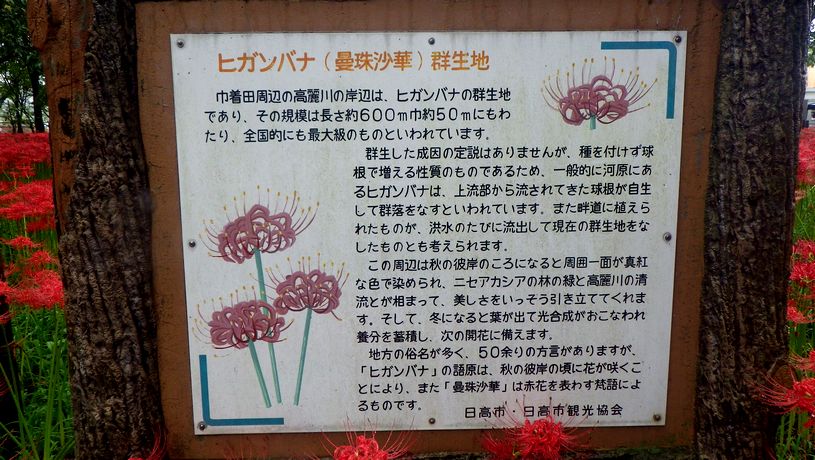 ヒガンバナ(曼珠沙華)群生地
巾着田周辺の高麗川の岸辺は、ヒガンバナの群生地
であり、その規模は長さ約600m巾約50mにもわ
たり、全国的にも最大級のものといわれています。
群生した成因の定説はありませんが、種を付けず球
根で増える性質のものであるため、一般的に河原にあ
るヒガンバナは、上流部から流されてきた球根が自生
して群落をなすといわれています。また畔道に植えら
れたものが、洪水のたびに流出して現在の群生地をな
したものとも考えられます。
この周辺は秋の彼岸のころになると周囲一面が真紅
な色で染められ、ニセアカシアの林の緑と高麗川の清
流とが相まって、美しさをいっそう引き立ててくれま
す。そして、冬になると葉が出て光合成がおこなわれ
養分を蓄積し、次の開花に備えます。
地方の俗名が多く、50余りの方言がありますが、
「ヒガンバナ」の語原は、秋の彼岸の頃に花が咲くこ
とにより、また「曼珠沙華」は赤花を表わす梵語によ
るものです。
日高市・日高市観光協会